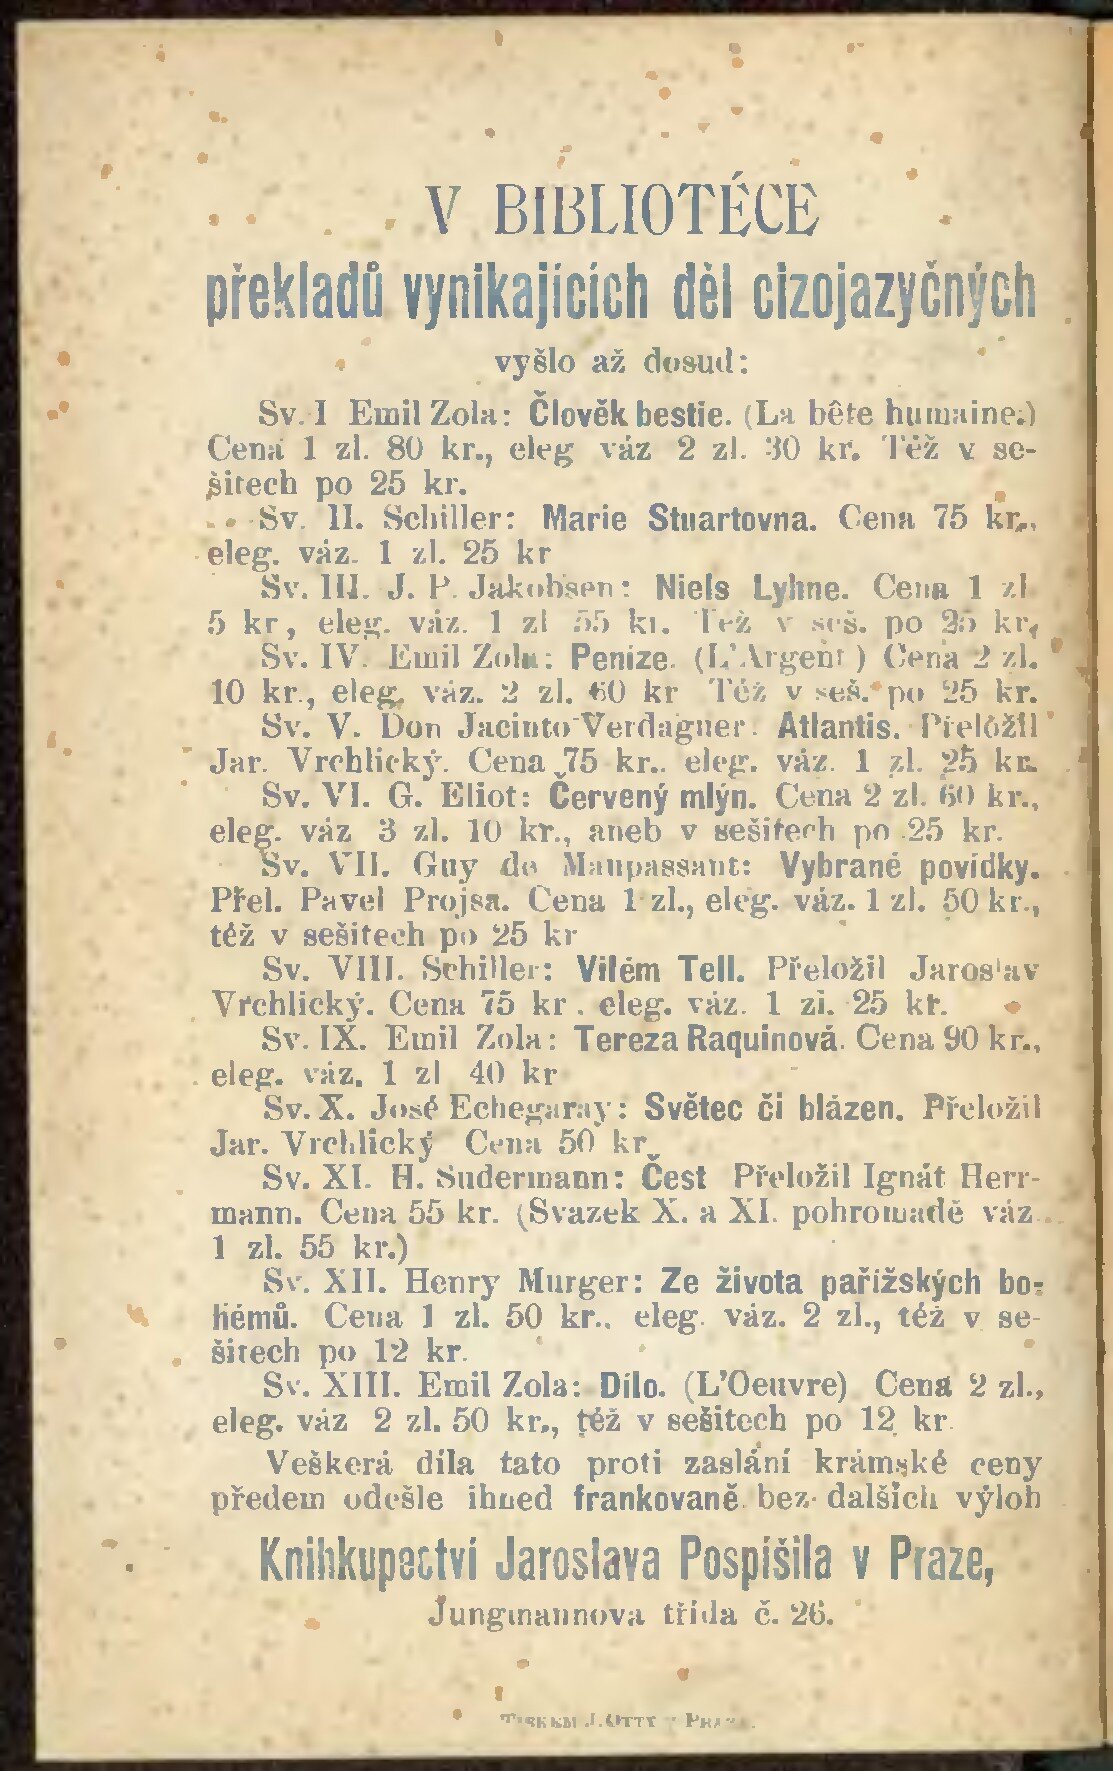 V BIBLIOTÉCE
překladů vynikajících děl cizojazyčných
vyšlo až dosud:
Sv. I Emil Zola: Člověk bestie. (La bête humaine.)
Cena 1 zl. 80 kr., eleg váz 2 zl. 30 kr. Též v se-
šitech po 25 kr.
Sv. II. Schiller: Marie Stuartovna. Cena 75 kr.,
eleg. váz. 1 zl. 25 kr
Sv. III. J. P. Jakobsen: Niels Lyhne. Cena 1 zl
5 kr, eleg. váz. 1 zl 55 kr. Též v seš. po 25 kr.
Sv. IV. Emil Zola: Peníze. (L'Argent) Cena 2 zl.
10 kr., eleg. váz. 2 zl. 60 kr Též v seš. po 25 kr.
Sv. V. Don Jacinto Verdaguer. Atlantis. Přeložil
Jar. Vrchlický. Cena 75 kr.. eleg. váz. 1 zl. 25 kr.
Sv. VI. G. Eliot: Červený mlýn. Cena 2 zl. 60 kr.,
eleg. váz 3 zl. 10 kr., aneb v sešitech po 25 kr.
Sv. VII. Guy de Maupassant: Vybrané povídky.
Přel. Pavel Projsa. Cena 1 zl., eleg. váz. 1 zl. 50 kr.,
též v sešitech po 25 kr
Sv. VIII. Schiller: Vilém Tell. Přeložil Jaroslav
Vrchlický. Cena 75 kr. eleg. váz. 1 zl. 25 kr.
Sv. IX. Emil Zola: Tereza Raquinová. Cena 90 kr.,
eleg. váz. 1 zl 40 kr
Sv. X. José Echegaray: Světec či blázen. Přeložil
Jar. Vrchlický Cena 50 kr.
Sv. XI. H. Sudermann: Čest Přeložil Ignát Herr-
mann. Cena 55 kr. (Svazek X. a XI. pohromadě váz.
1 zl. 55 kr.)
Sv. XII. Henry Murger: Ze života pařížských bo-
hémů. Cena 1 zl. 50 kr., eleg. váz. 2 zl., též v se-
šitech po 12 kr.
Sv. XIII. Emil Zola: Dílo. (L'Oeuvre) Cena 2 zl.,
eleg. váz 2 zl. 50 kr., též v sešitech po 12 kr
Veškerá díla tato proti zaslání krámské ceny
předem odešle ihned frankovaně bez dalších výloh
Knihkupectví Jaroslava Pospíšila v Praze,
Jungmannova třída č. 26.
Tiskem J. Otty v Praze.